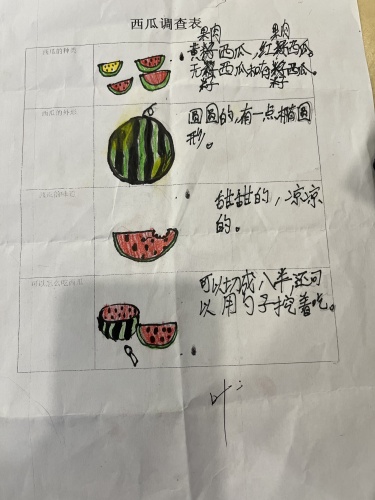 西瓜调查表
西瓜的种类
果肉 果肉
黄籽西瓜,红籽西瓜。
无籽西瓜和有籽西瓜。
籽 籽
西瓜的外形
圆圆的,有一点椭圆
形。
西瓜的味道
甜甜的,凉凉
的。
可以怎么吃西瓜
可以切成八半,还可
以用勺子挖着吃。
叶